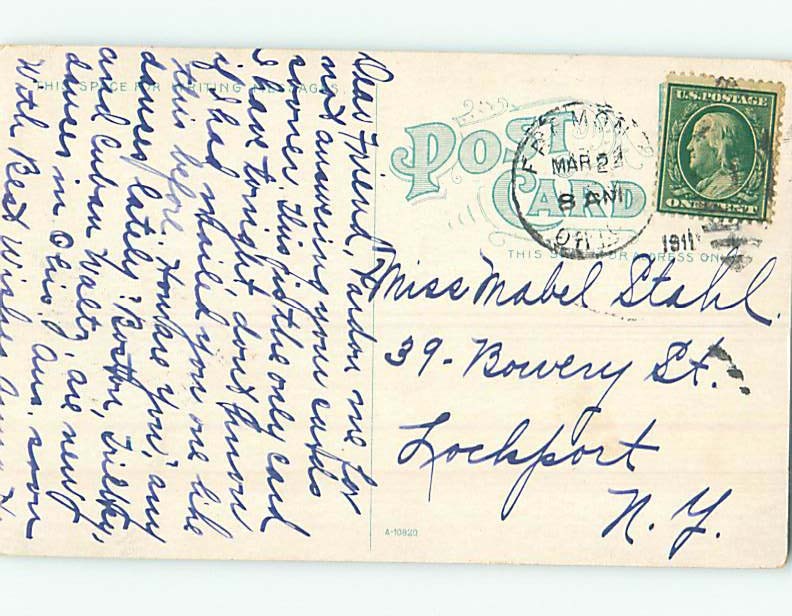 THIS SPACE FOR WRITING MESSAGES
Dear Friend, Pardon me for
not answering your cards
sooner. This is the only card
I have tonight, don't know
if I had mailed you one like
this before. How are you, any
dances lately? Boston,
and Cuban Waltz are new
dances in Ohio. Ans. soon
With Best Wishes
POST
CARD
THIS SPACE FOR ADDRESS ONLY
MAR 2
8 AM
1911
U.S. POSTAGE
ONE CENT
Miss Mabel Stahl.
39 - Bowery St.
Lockport
N. Y.
A-10820